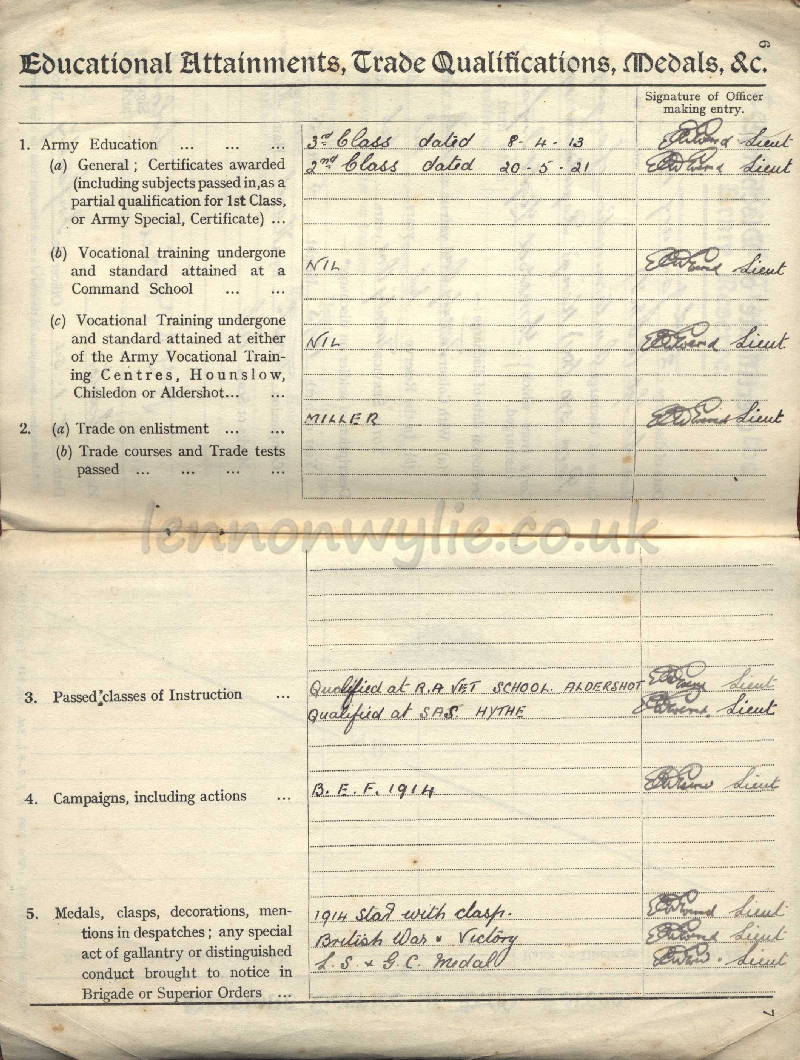 6
Educational Attainments, Trade Qualifications, Medals, &c.
Signature of Officer
making entry.
1. Army Education ... ... ... 3rd Class dated 8-4-13 Lieut
(a) General; Certificates awarded 2nd Class dated 20-5-21 Lieut
(including subjects passed in, as a
partial qualification for 1st Class,
or Army Special, Certificate) ...
(b) Vocational training undergone
and standard attained at a NIL Lieut
Command School ... ...
(c) Vocational Training undergone
and standard attained at either NIL Lieut
of the Army Vocational Train-
ing Centres, Hounslow,
Chisledon or Aldershot... ...
2. (a) Trade on enlistment ... ... MILLER Lieut
(b) Trade courses and Trade tests
passed ... ... ... ...
lennonwylie.co.uk
3. Passed classes of Instruction ... Qualified at R.A VET SCHOOL. ALDERSHOT Lieut
Qualified at SAS. HYTHE Lieut
4. Campaigns, including actions ... B. E. F. 1914 Lieut
5. Medals, clasps, decorations, men- 1914 Star with clasp. Lieut
tions in despatches; any special British War & Victory Lieut
act of gallantry or distinguished L.S & G.C. Medal Lieut
conduct brought to notice in
Brigade or Superior Orders ...
7